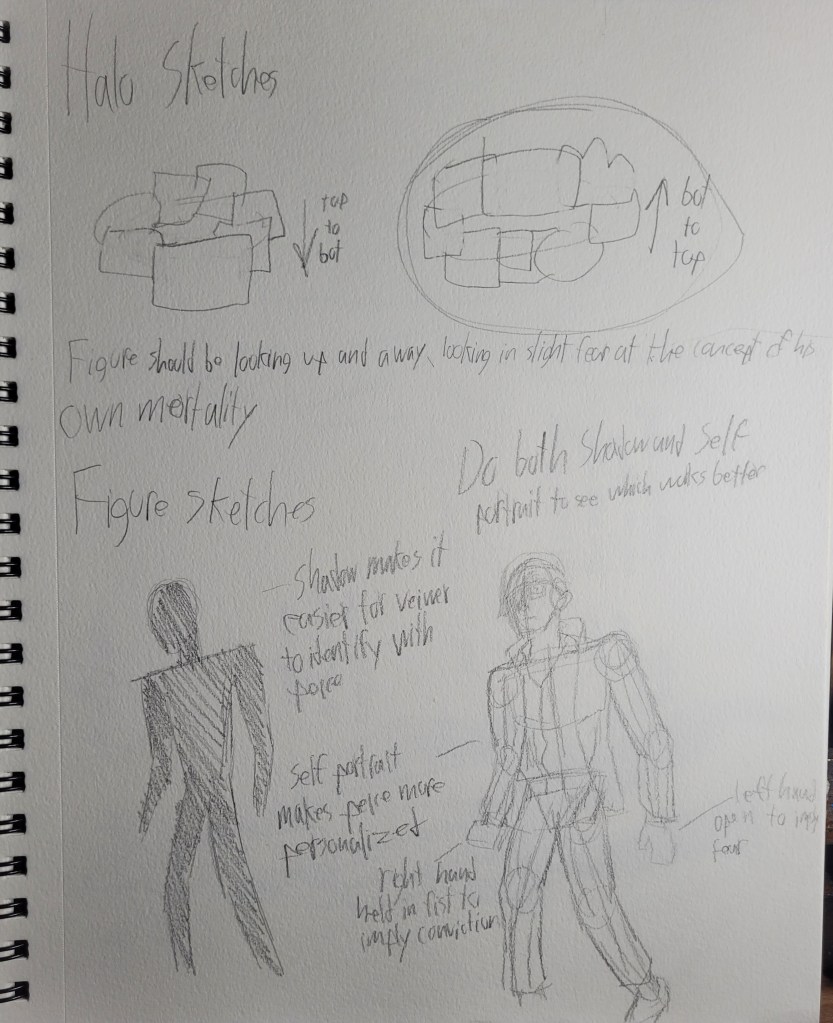 Halo Sketches
top
to
bot
bot
to
top
Figure should be looking up and away, looking in slight fear at the concept of his
own mortality
Do both Shadow and Self
portrait to see which works better
Figure sketches
shadow makes it
easier for veiwer
to identify with
peice
self portrait
makes peice more
personalized
right hand
held in fist to
imply conviction
left hand
open to imply
fear